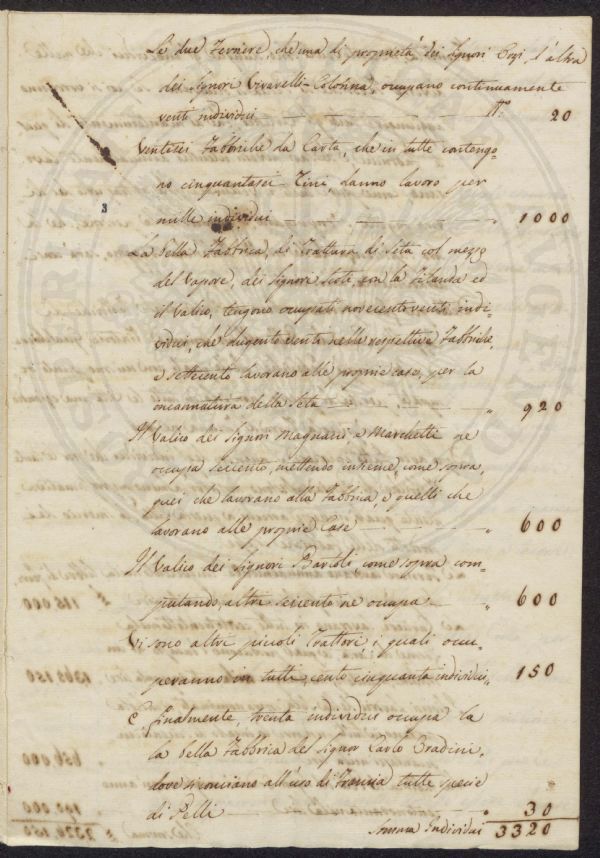 Le due Ferriere, che una di proprietà dei Signori Pogi, l'altra
dei Signori Viravelli-Colonna, occupano continuamente
venti individui N.° 20
Ventisei Fabbriche da Carta, che in tutte contengo-
no cinquantasei Tini, danno lavoro per
3
mille individui " 1000
La bella Fabbrica, di Trattura di Seta col mezzo
del Vapore, dei Signori Scoti, con la Filanda ed
il Valico, tengono occupati novecento venti indi-
vidui, che dugento venti nelle respettive Fabbriche,
e settecento lavorano alle proprie case, per la
incannatura della Seta " 920
Il Valico dei Signori Magnani e Marchetti ne
occupa seicento, mettendo insieme, come sopra,
quei che lavorano alla Fabbrica, e quelli che
lavorano alle proprie Case " 600
Il Valico dei Signori Bartoli, come sopra com-
putando, altri seicento ne occupa " 600
Vi sono altri piccoli Trattori, i quali occu-
peranno in tutti, cento cinquanta individui " 150
E finalmente, trenta individui occupa la
la bella Fabbrica del Signor Carlo Oradini,
dove si conciano all'uso di Francia tutte specie
di Pelli " 30
Somma Individui 3320